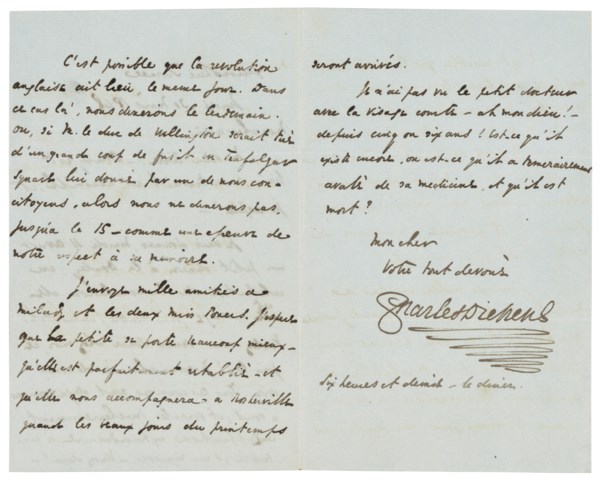 C'est possible que la revolution
anglaise ait lieu, le meme jour. Dans
ce cas là, nous dinerons le lendemain.
ou, si M. le duc de Wellington serait tué
d'un grande coup de fusil en Trafalgar
Square lui donné par un de nous con-
citoyens, alors nous ne dinerons pas,
jusqu'a le 15 — comme une de
notre respect à sa memoire.
J'envoye mille amitiés a
milady et les deux miss Powers. J'espere
que la petite se porte beaucoup mieux —
qu'elle est parfaitement rétablie — et
qu'elle nous accompagnera a Rosherville
quand les beaux jours du printemps
seront arrivés.
Je n'ai pas vu le petit docteur
avec la visage comte — ah mon dieu! —
depuis cinq ou six ans! Est-ce qu'il
existe encore, ou est-ce qu'il a temerairement
avalé de sa medicine, et qu'il est
mort?
Mon cher
Votre tout devoué
Charles Dickens
Six heures et demie — le diner.